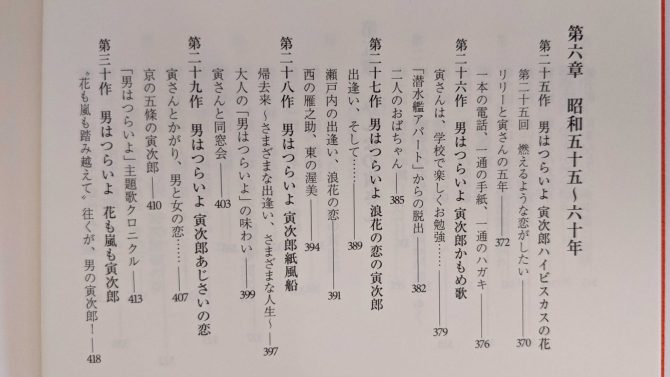 第六章　昭和五十五～六十年
第二十五作　男はつらいよ 寅次郎ハイビスカスの花
第二十五回　燃えるような恋がしたい——370
リリーと寅さんの五年——372
一本の電話、一通の手紙、一通のハガキ——376
第二十六作　男はつらいよ 寅次郎かもめ歌
寅さんは、学校で楽しくお勉強……——379
「潜水艦アパート」からの脱出——382
二人のおばちゃん——385
第二十七作　男はつらいよ 浪花の恋の寅次郎
出逢い、そして……——389
瀬戸内の出逢い、浪花の恋——391
西の雁之助、東の渥美——394
第二十八作　男はつらいよ 寅次郎紙風船
帰去来～さまざまな出逢い、さまざまな人生～——397
大人の「男はつらいよ」の味わい——399
寅さんと同窓会——403
第二十九作　男はつらいよ 寅次郎あじさいの恋
寅さんとかがり、男と女の恋……——407
京の五條の寅次郎——410
「男はつらいよ」主題歌クロニクル——413
第三十作　男はつらいよ 花も嵐も寅次郎
〝花も嵐も踏み越えて〟往くが、男の寅次郎！——418